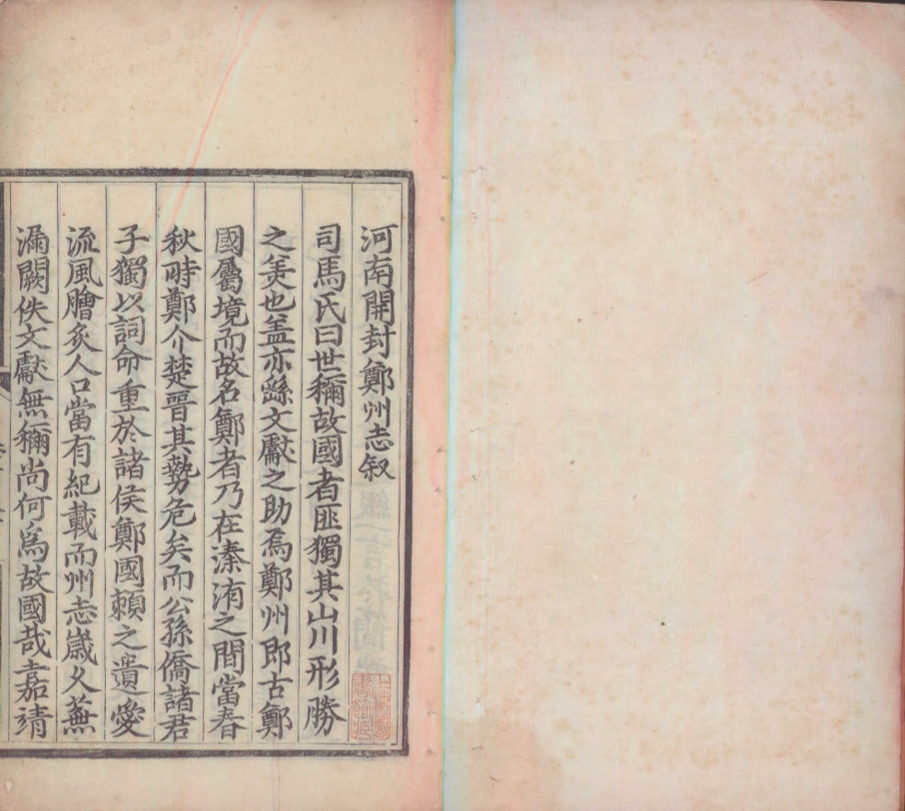 河南開封鄭州志叙
司馬氏曰世稱故國者匪獨其山川形勝
之羙也盖亦繇文獻之助焉鄭州即古鄭
國屬境而故名鄭者乃在溱洧之間當春
秋時鄭介楚晉其勢危矣而公孫僑諸君
子獨以詞命重於諸侯鄭國頼之遺愛
流風膾炙人口當有紀載而州志嵗久蕪
漏闕佚文獻無稱尚何爲故國哉嘉靖